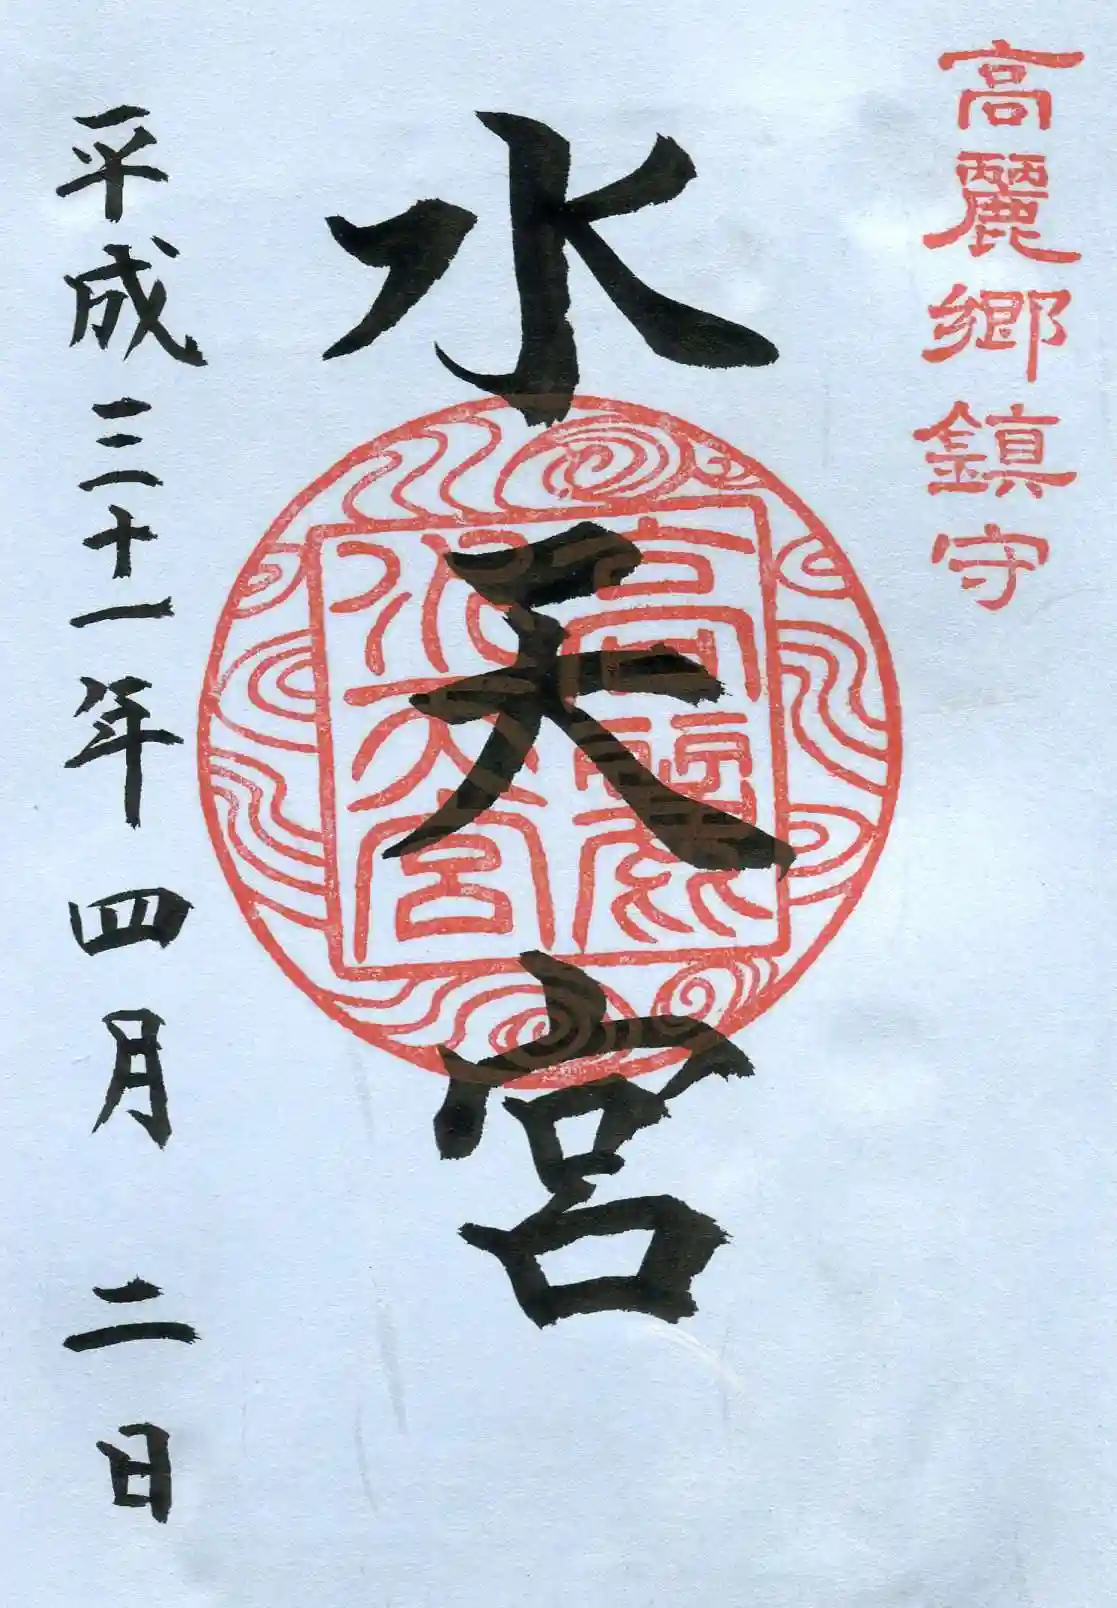 高麗郷鎮守
水天宮
高麗
水天宮
平成三十一年四月二日